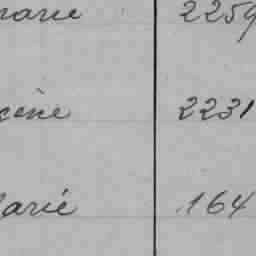 marie 2259
gène 2231
Marié 164